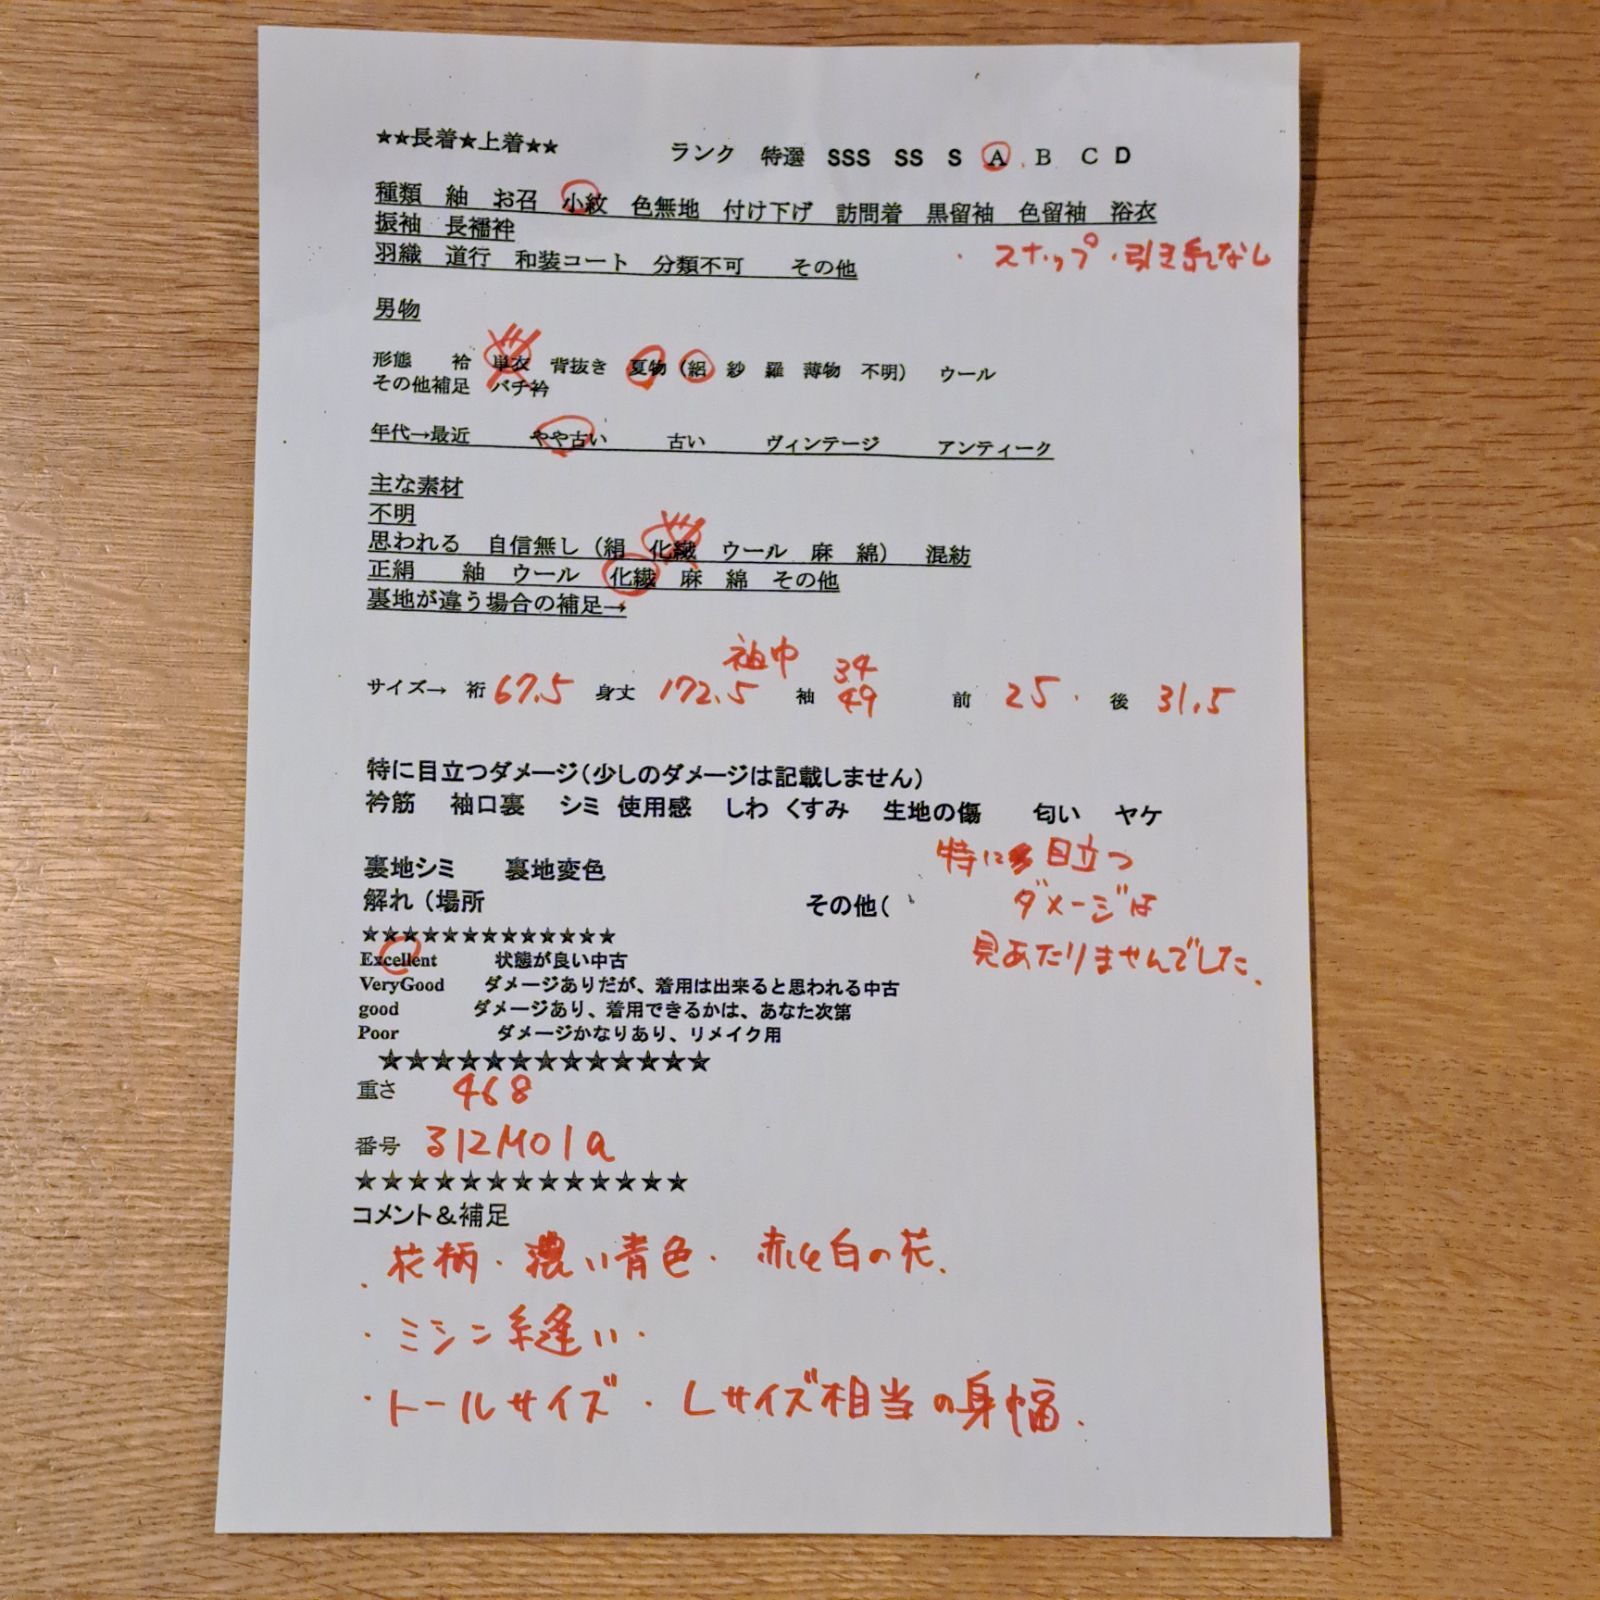 ★★長着★上着★★　ランク　特選　SSS　SS　S　A　B　C　D
種類　紬　お召　小紋　色無地　付け下げ　訪問着　黒留袖　色留袖　浴衣
振袖　長襦袢
・スナップ・引き糸なし
羽織　道行　和装コート　分類不可　その他
男物
形態　袷　単衣　背抜き　夏物（絽　紗　羅　薄物　不明）　ウール
その他補足　バチ衿
年代→最近　やや古い　古い　ヴィンテージ　アンティーク
主な素材
不明
思われる　自信無し（絹　化繊　ウール　麻　綿）　混紡
正絹　紬　ウール　化繊　麻　綿　その他
裏地が違う場合の補足→
袖巾　34
サイズ→　裄 67.5　身丈 172.5　袖 49　前 25　後 31.5
特に目立つダメージ（少しのダメージは記載しません）
衿筋　袖口裏　シミ　使用感　しわ　くすみ　生地の傷　匂い　ヤケ
特に目立つ
裏地シミ　裏地変色
解れ（場所　その他（
ダメージは
見あたりませんでした.
★★★★★★★★★★★★★
Excellent　状態が良い中古
VeryGood　ダメージありだが、着用は出来ると思われる中古
good　ダメージあり、着用できるかは、あなた次第
Poor　ダメージかなりあり、リメイク用
★★★★★★★★★★★★★
重さ　468
番号　312M01a
★★★★★★★★★★★★★
コメント＆補足
・花柄・濃い青色・赤や白の花.
・ミシン縫い・
・トールサイズ・Lサイズ相当の身幅.